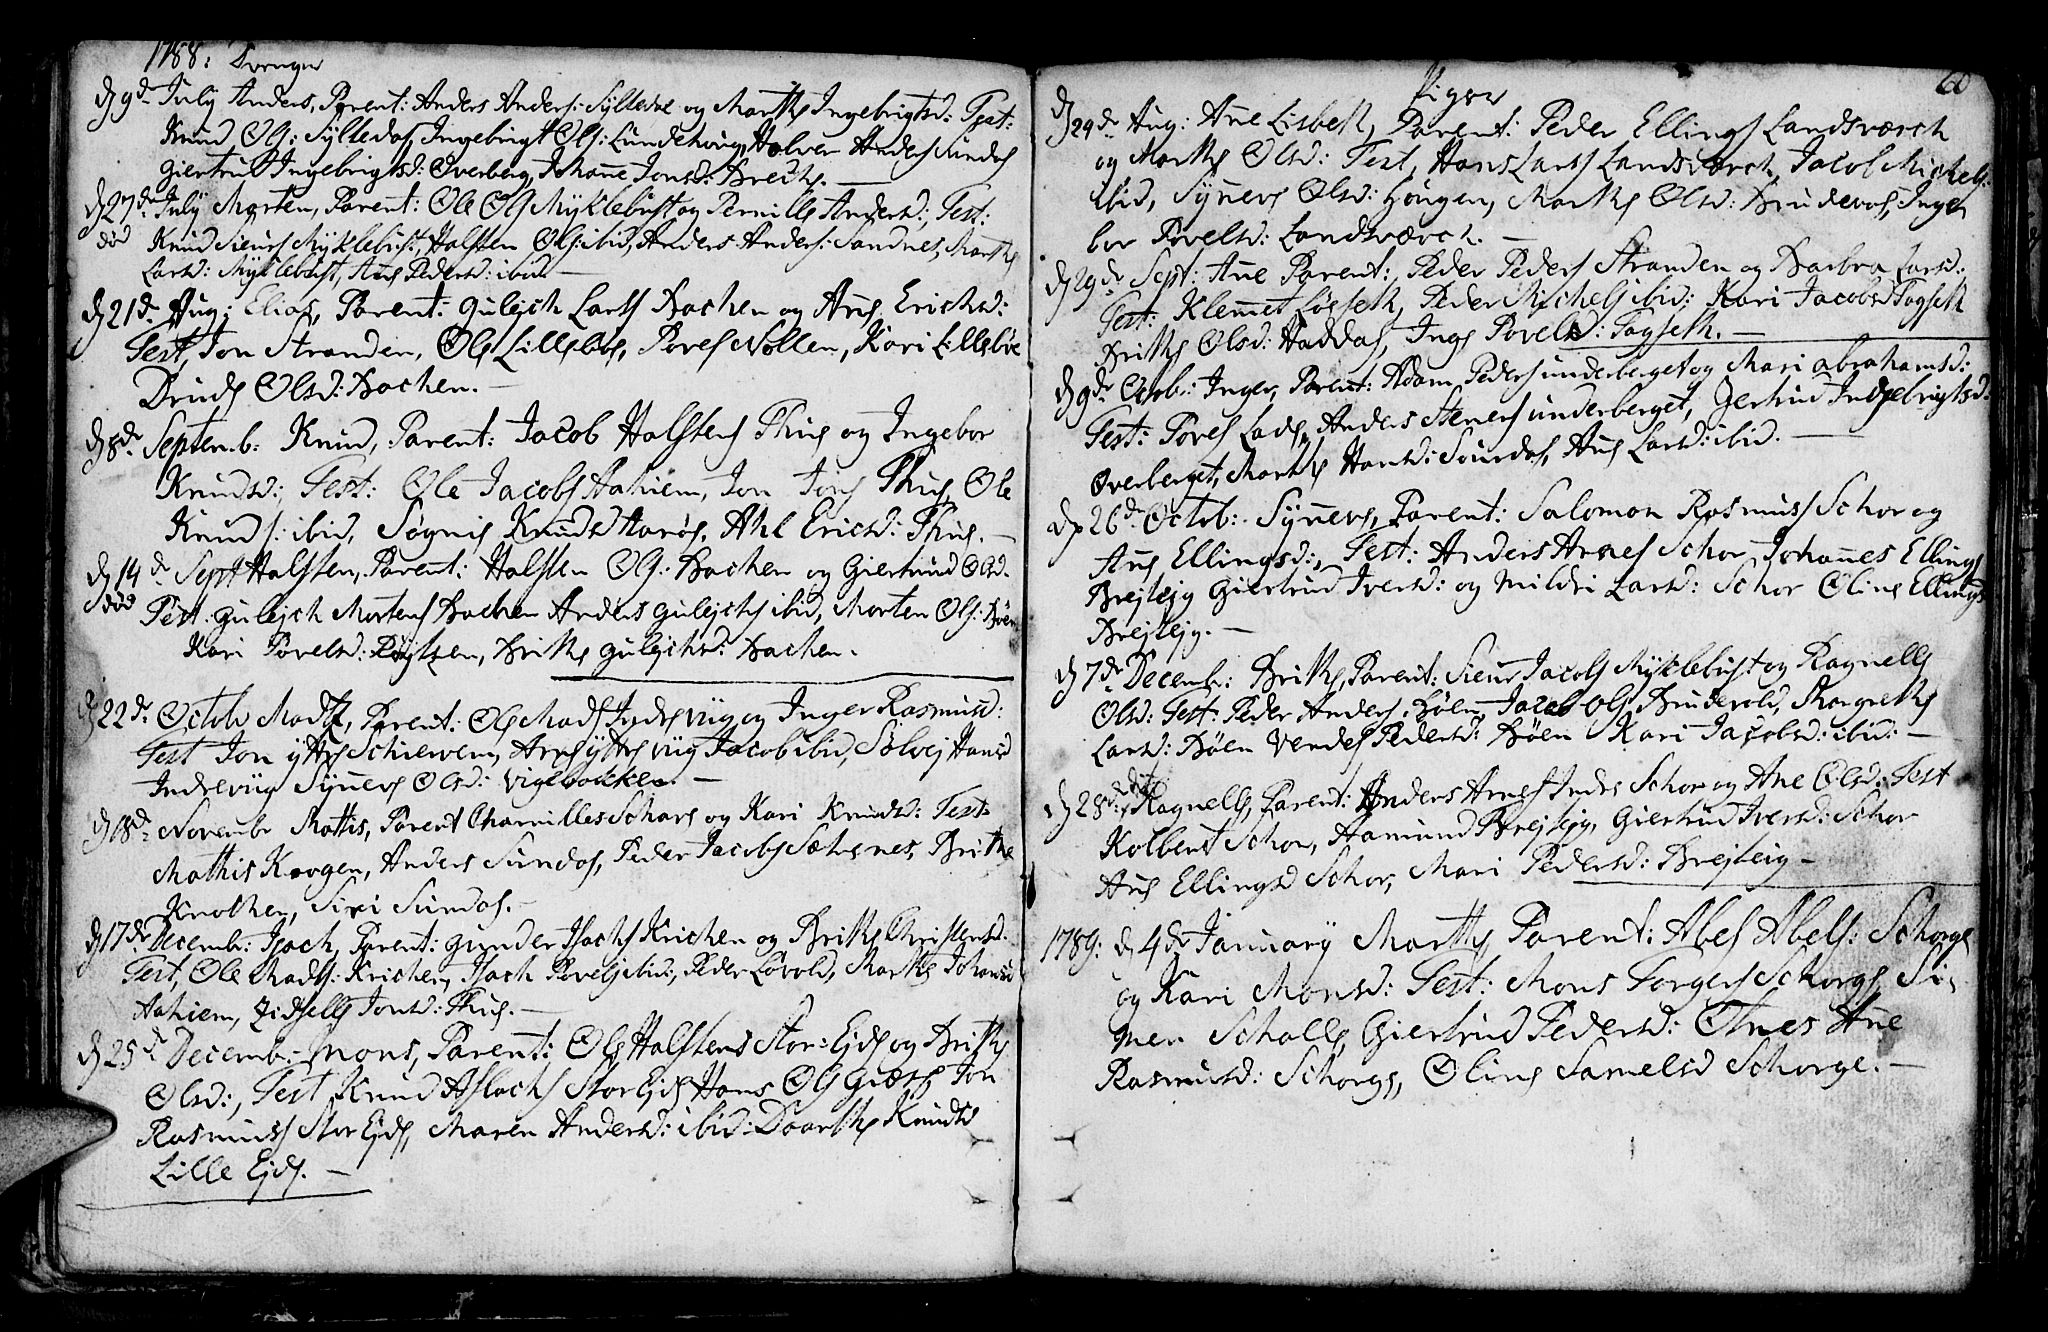 1788: Drenger
d 9de July Anders, Parent: Anders Anders: Sylledal og Marthe Ingebrigtsd: Test:
Knud Ols: Sylledal, Ingebrigt Ols: Lundehoug, Halver Anders Sundal
Giertrud Ingebrigtsd: Overberg, Johanne Jonsd:
d 27de July Morten, Parent: Ole Ols Myklebust og Pernille Andersd: Test:
død Knud Siurs Myklebust, Halsten Ols: ibid, Anders Anders: Sandnes, Marthe
Larsd: Myklebust, Ane Pedersd: ibid –
d 21de Aug: Elias, Parent: Gulejch Lars Bachen og Ane Erichsd:
Test, Jon Stranden, Ole Lillebøe, Povel Nollen, Kari Lillebøe
Drude Olsd: Bachen. –
d 8de Septemb: Knud, Parent: Jacob Halstens Thue og Ingebor
Knudsd:, Test: Ole Jacobs Aahiem, Jon Jons Thue, Ole
Knuds: ibid, Søgnie Knudsd Harøe, Ahl Ericsd: Thue. –
d 14de Sept Halsten, Parent: Halsten Ols: Bachen og Giertrud Olsd.
død Test. Gulejch Mortens Bachen Anders Gulejchs ibid, Morten Ols: Böen
Kari Povelsd: Røytsen, Brithe Gulejchsd: Bachen.
d 22de Octob Madtz, Parent: Ole Mads Indreviig og Inger Rasmusd:
Test Jon ytre Schieven, Arne ytre viig Jacob ibid, Sølvej Hansd
Indreviig Synneve Olsd: Vigebakken. –
d 18de Novembr Mattis, Parent Charnilles Schare og Kari Knudsd: Test:
Mathis Korgen, Anders Sundal, Peder Jacobs Sætrenes, Brithe
Knothen, Siri Sundal. –
d 17de Decemb: Isach, Parent: Gunder Isachs Krichen og Brithe Christensd:
Test, Ole Mads: Krichen, Isach Povels ibid:, Peder Løvold, Marthe Johansd
Aahiem, Zidselle Jonsd: Thue. –
d 25de Decemb: Mons, Parent: Ole Halstens Stor: Ejde og Brithe
Olsd:, Test Knud Aslachs Stor Ejde Hans Ols Giære Jon
Rasmuss Stor Ejde, Maren Andersd: ibid: Daarthe Knudsd
Lille Ejde. –
Piger
60
d 24de Aug: Ane Lisbeth, Parent: Peder Ellings Landsværch
og Marthe Olsd: Test, Hans Lars Landsværch, Jacob Michels:
ibid, Synneve Olsd: Hougen, Marthe Olsd: Brudevol, Inge
bor Povelsd: Landsværch. –
d 29de Sept: Ane Parent:, Peder Peders Stranden og Barbra Larsd:
Test: Klemmet Løseth, Peder Michels ibid: Kari Jacobsd Fagseth
Brithe Olsd: Haddal, Inge Povelsd: Fagseth. –
d 9de Octob: Inger, Parent: Adam Peders underberget og Mari Abrahamsd:
Test: Povel Lade, Anders Steners underberget, Gertrud Ingebrigtsd:
Overberget, Marthe Hansd: Sourdal, Ane Larsd: ibid. –
d 26de Octob: Synneve, Parent: Salomon Rasmuss Schor og
Ane Ellingsd:, Test: Anders Arnes Schor, Johannes Ellings
Brejtejg Giertrud Iversd: og Mildri Larsd: Schor Oline Ellingsd
Brejtejg. –
d 7de Decemb: Brithe, Parent: Siur Jacobs Myklebust og Ragnelle
Olsd: Test: Peder Anders: Böen, Jacob Ols Brudevold, Margrethe
Larsd: Böen Vendel Pedersd: Böen Kari Jacobsd: ibid: –
d 28de dito Ragnelle, Parent: Anders Arnes Indre Schor og Ane Olsd: Test
Kolbent Schor, Aamund Brejtejg, Giertrud Iversd: Schor
Ane Ellingsd Schor, Mari Pedersd: Brejteig –
1789: d 4de January Marthe Parent: Abel Abels: Schorge
og Kari Monsd: Test: Mons Torgers Schorge, Si-
men Scholle, Giertrud Pedersd: Otnes Ane
Rasmusd: Schorge, Oline Samelsd Schorge. –